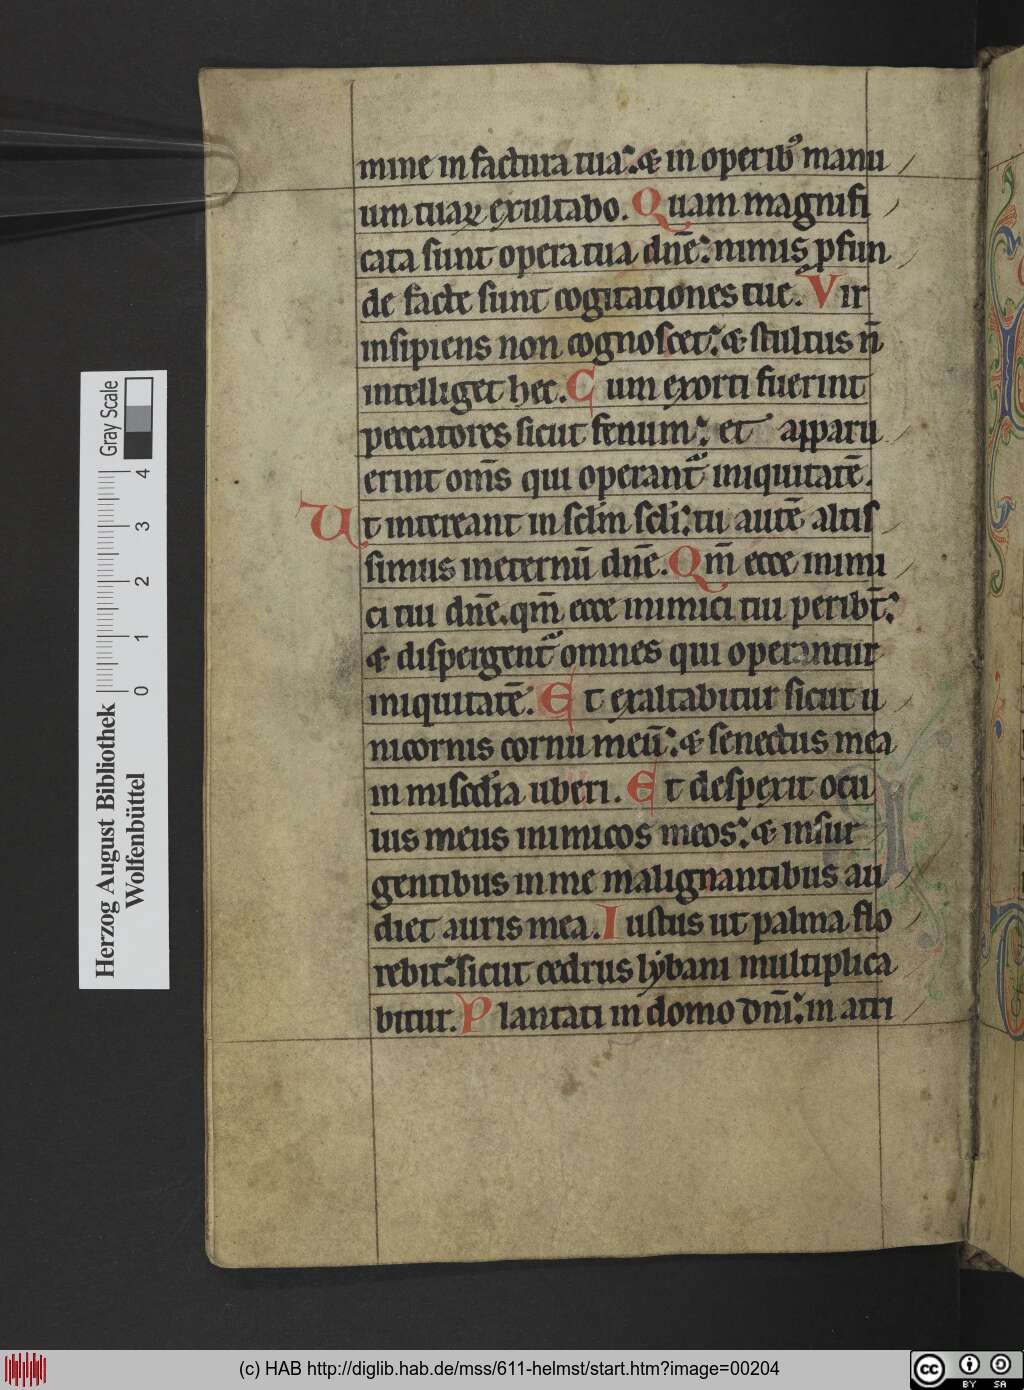 mine in factura tua: & in operib᷒ manu
um tuaꝝ exultabo. Quam magnifi
cata sunt opera tua dn̄e: nimis ꝓfun
de facte sunt cogitationes tue. Vir
insipiens non cognoscet: & stultus n̄
intelliget hec. Cum exorti fuerint
peccatores sicut fenum: et apparu
erint om̄s qui operant᷑ iniquitatē.
Ut intereant in sclm̄ scli̅: tu autē altis
simus in eternū dn̄e. Qm̄ ecce inimi
ci tui dn̄e. qm̄ ecce inimici tui peribt̄:
& dispergent᷑ omnes qui operantur
iniquitatē. Et exaltabitur sicut u
nicornis cornu meū: & senectus mea
in misc̄dia uberi. Et despexit ocu
lus meus inimicos meos: & insur
gentibus in me malignantibus au
diet auris mea. Iustus ut palma flo
rebit: sicut cedrus lẏbani multiplica
bitur. Plantati in domo dn̄i: in atri
Herzog August Bibliothek
Wolfenbüttel
0 1 2 3 4
Gray Scale
(c) HAB http://diglib.hab.de/mss/611-helmst/start.htm?image=00204
cc BY SA